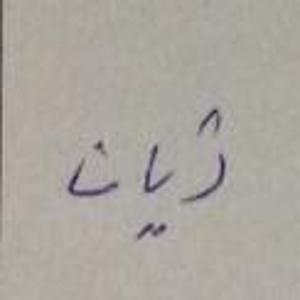 ژیان